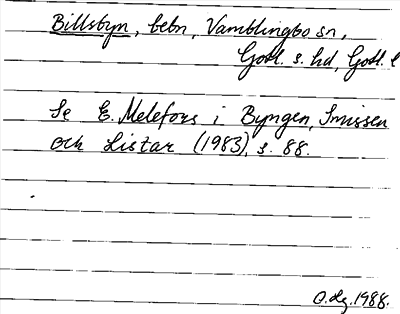 Billsbyn, bebn, Vamblingbo sn,
Gotl. s. hd, Gotl. l
Se E. Melefors i Byngen, Smissen
och Listar (1983), s. 88.
O.Lg. 1988.